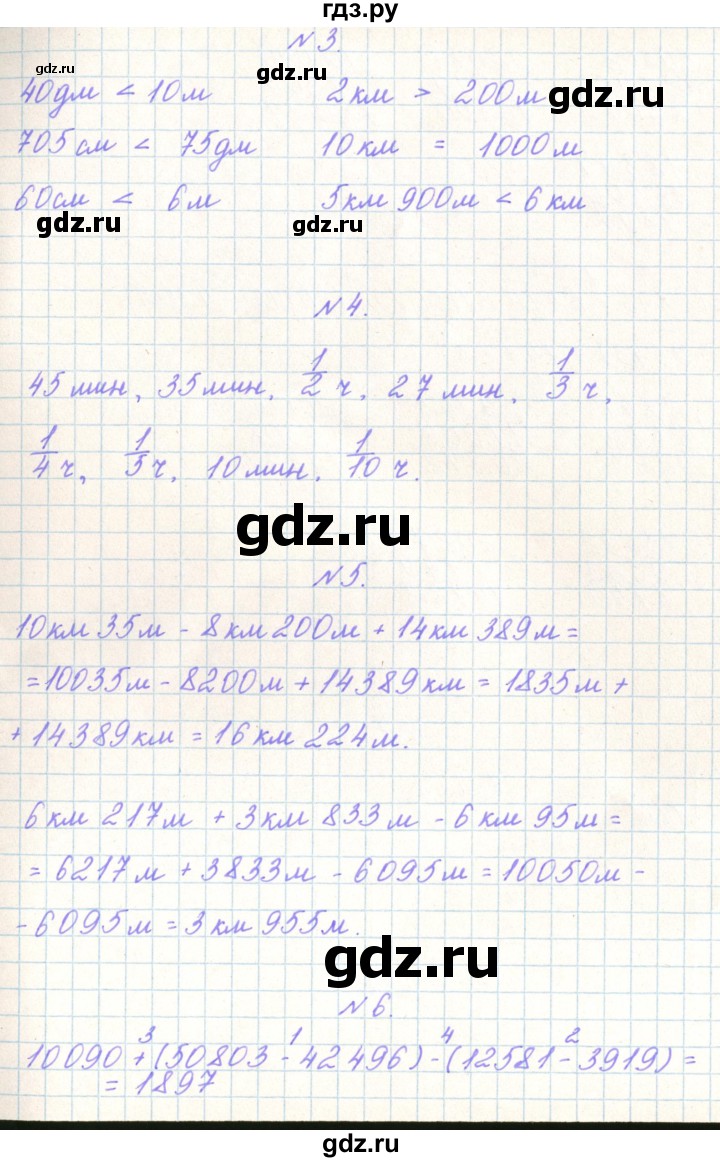 гдз.ру
N 3.
gdz.ru
gdz.ru
40дм < 10м 2км > 200м
gdz.ru
705см < 75дм 10км = 1000м
60см < 6м 5км 900м < 6км
gdz.ru
gdz.ru
N 4.
45мин, 35мин, 1/2 ч, 27мин, 1/3 ч,
1/4 ч, 1/5 ч, 10мин, 1/10 ч.
gdz.ru
N 5.
10км 35м - 8км 200м + 14км 389м =
= 10035м - 8200м + 14389км = 1835м +
+ 14389км = 16км 224м.
6км 217м + 3км 833м - 6км 95м =
= 6217м + 3833м - 6095м = 10050м -
- 6095м = 3км 955м.
gdz.ru
N 6.
3 1 4 2
10090 + (50803 - 42496) - (12581 - 3919) =
= 1897
gdz.ru